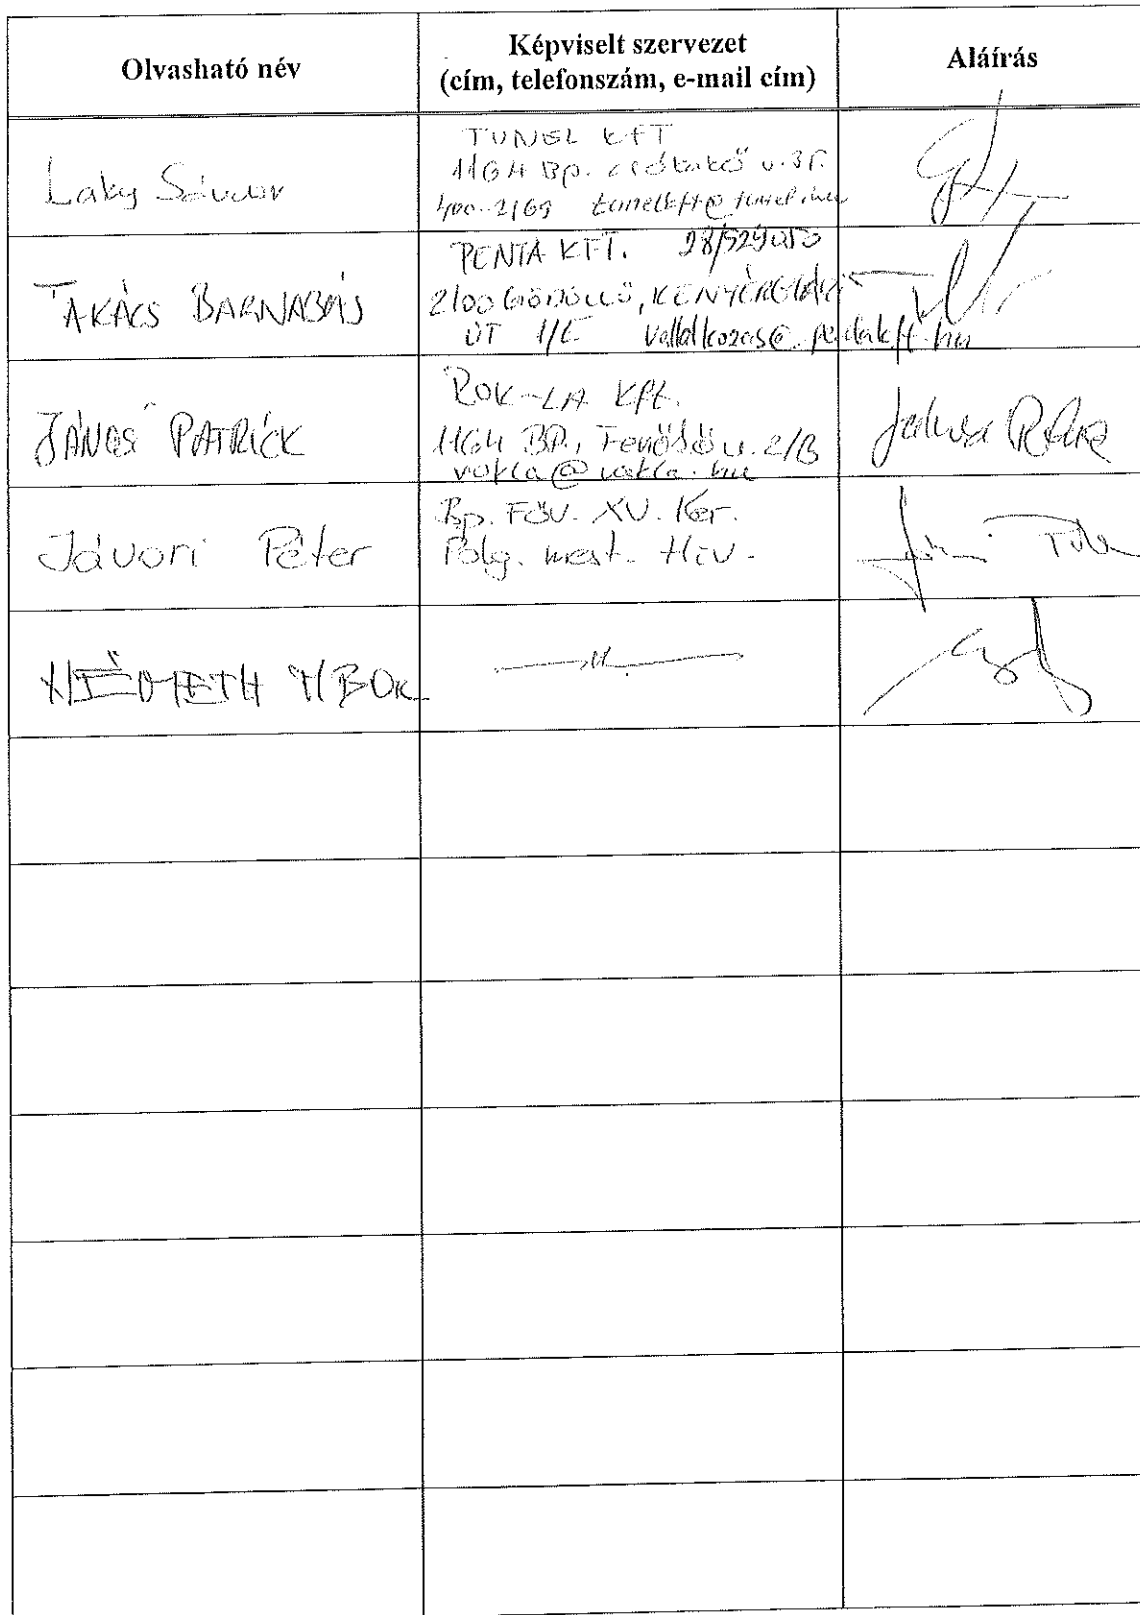 Olvasható név
Képviselt szervezet
(cím, telefonszám, e-mail cím)
Aláírás
Laky Sándor
TUNEL KFT
1164 Bp. Csókakő u. 37.
400-2169 tunelkft@tunel.hu
TAKÁCS BARNABÁS
PENTA KFT. 28/529050
2100 GÖDÖLLŐ, KENYÉRGYÁRI
ÚT 1/E vallalkozas@pentakft.hu
JÁNOSI PATRICK
ROK-LA Kft.
1164 BP., u. 2/B
rokla@rokla.hu
Jávori Péter
Bp. Föv. XV. Ker.
Polg. mest. Hiv.
NÉMETH TIBOR